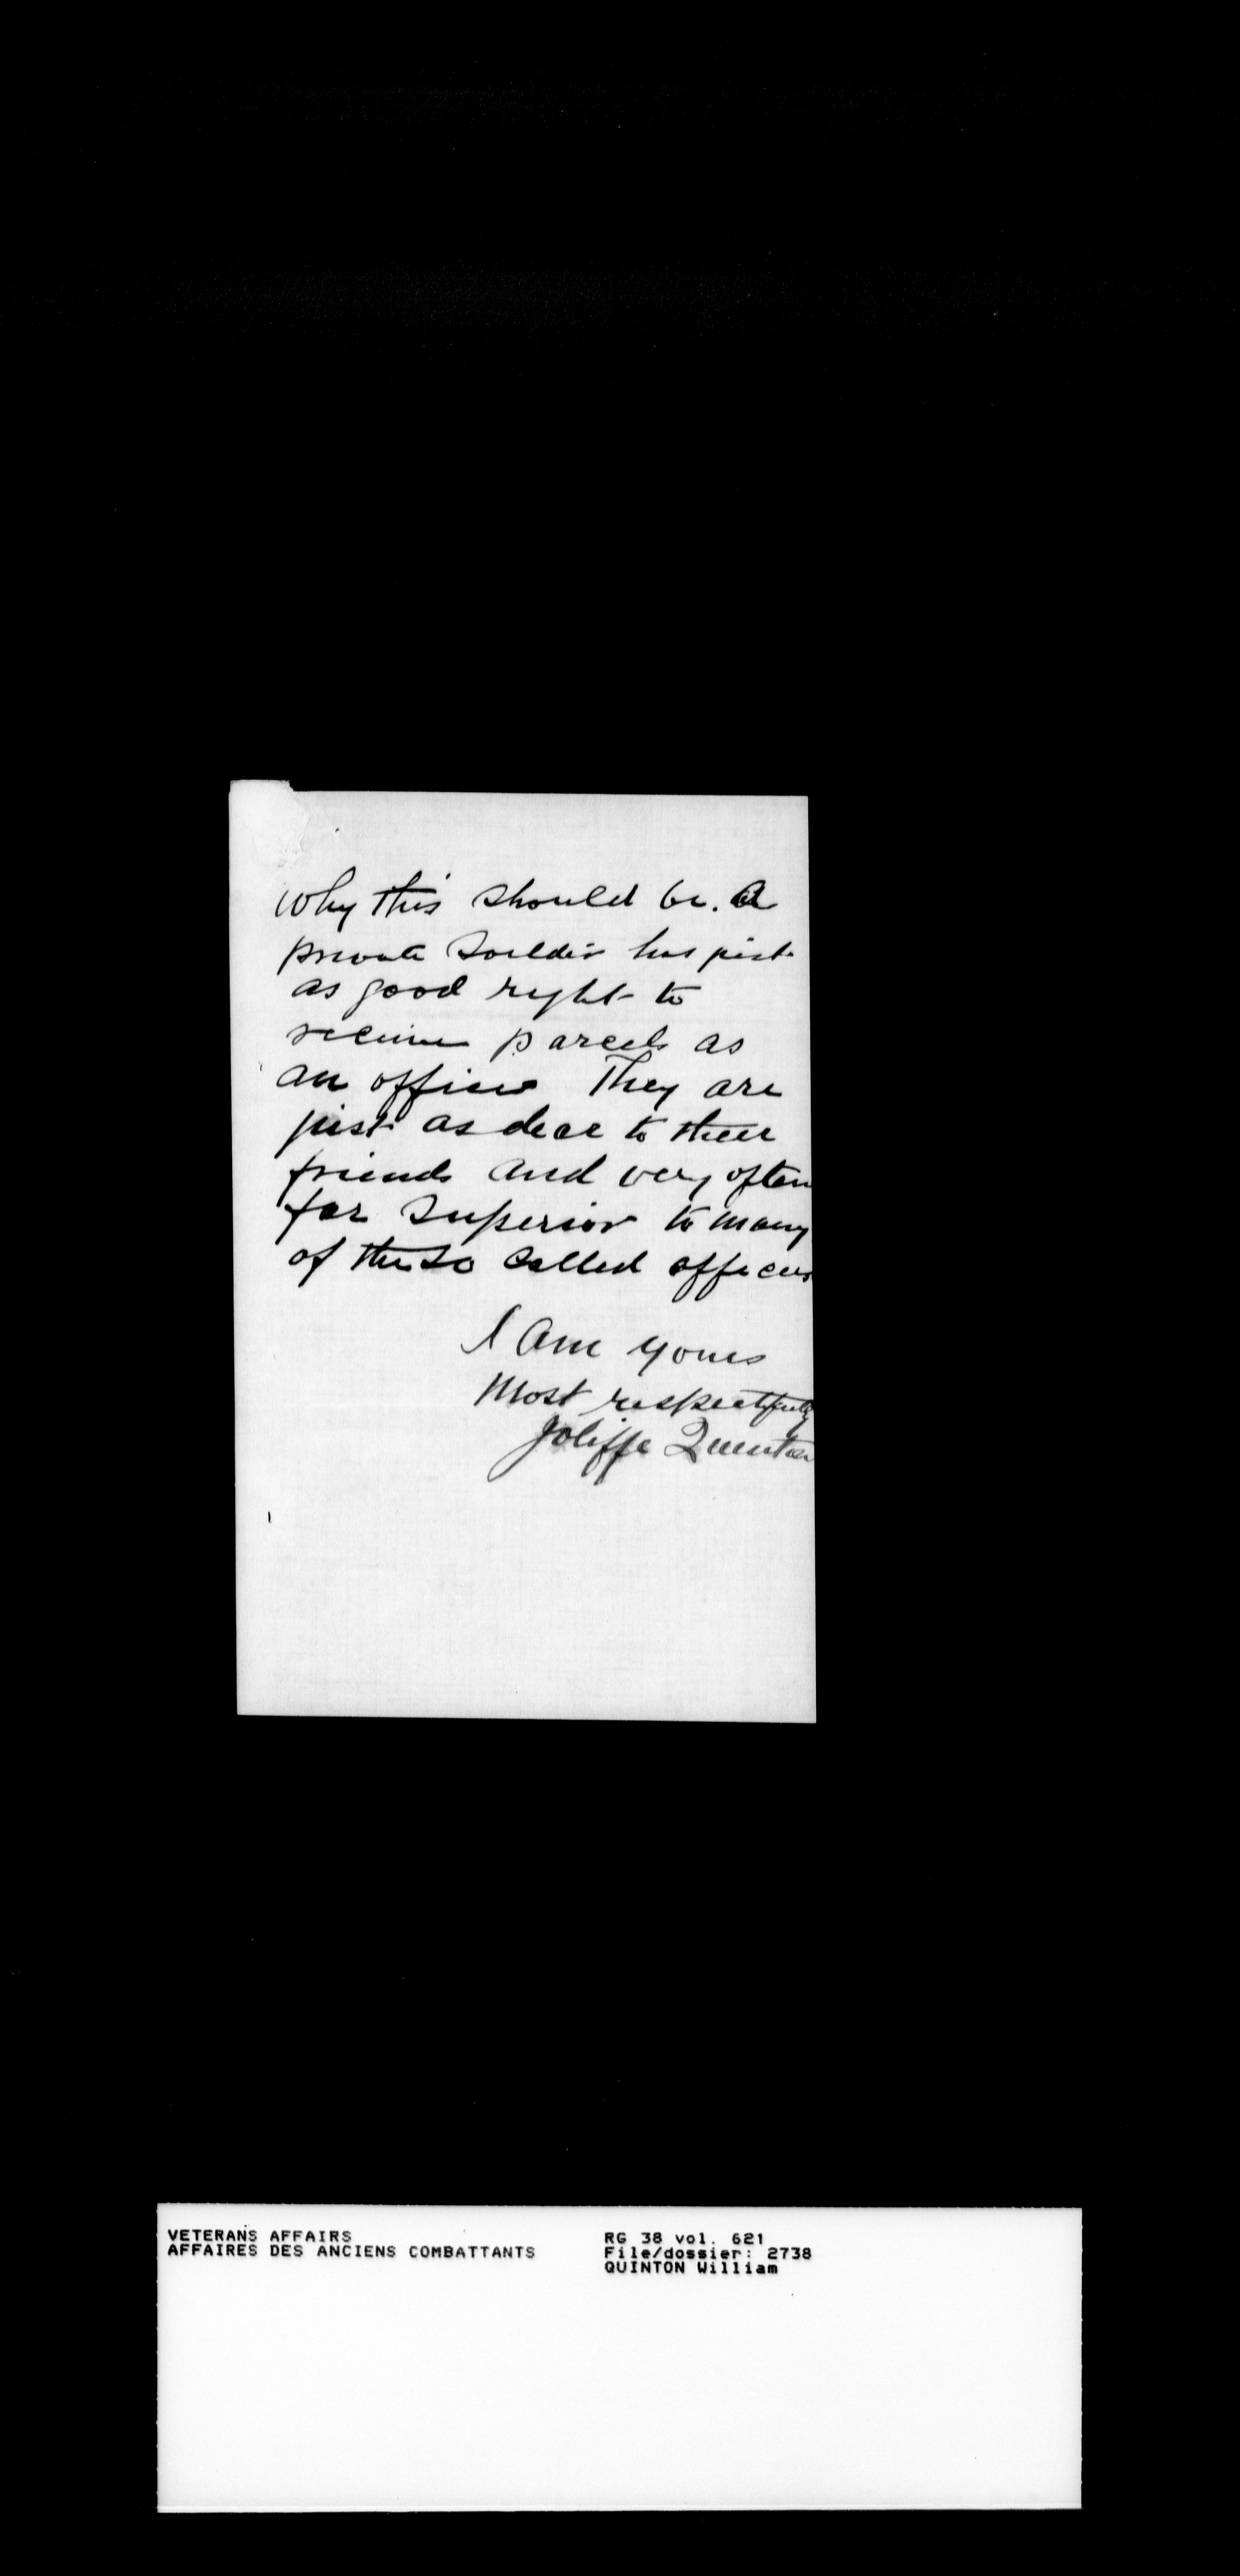 Why this should be. A
private Soildir has just
as good right to
recieve parcels as
an officer They are
just as dear to their
friends and very often
far Superior to many
of the so called officers
I am yours
Most respectfully
Joliffe Quinton
VETERANS AFFAIRS
AFFAIRES DES ANCIENS COMBATTANTS
RG 38 vol. 621
File/dossier: 2738
QUINTON William